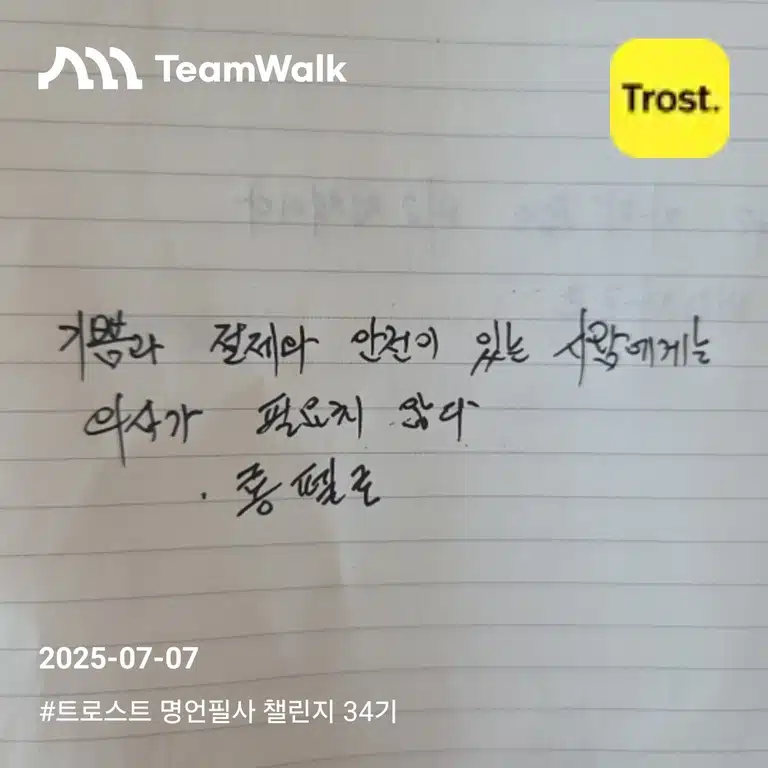 TeamWalk
Trost.
기쁨과 절제와 안전이 있는 사람에게는
의사가 필요치 않다
. 롱펠로
2025-07-07
#트로스트 명언필사 챌린지 34기